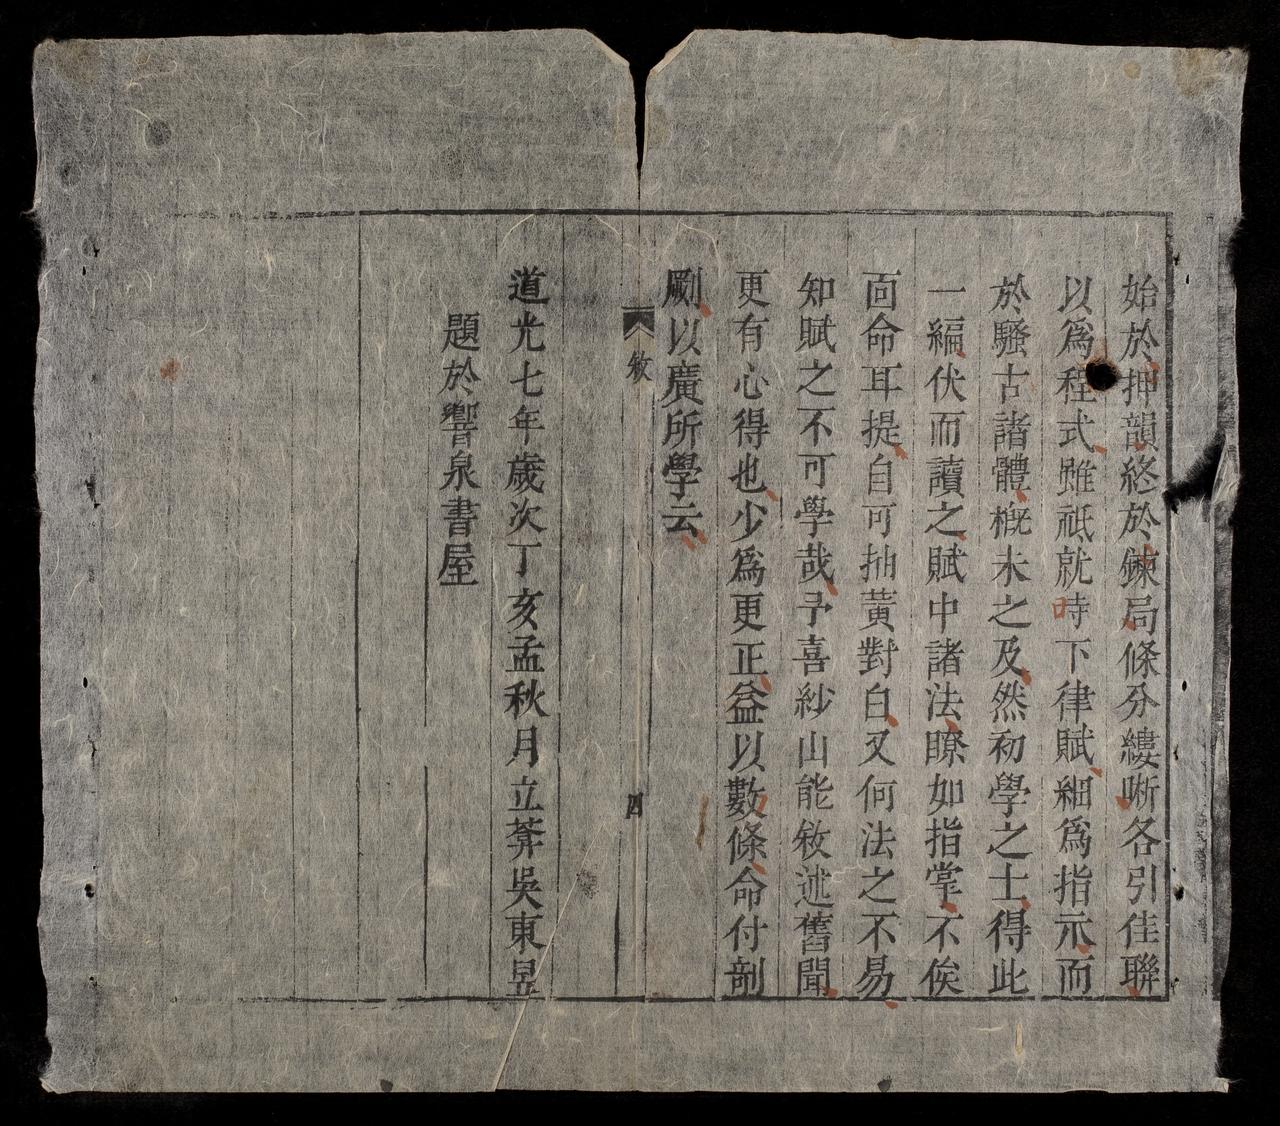 始於押韻終於鍊局條分縷晰各引佳聯
以爲程式雖祇就時下律賦細爲指示而
於騷古諸體槪未之及然初學之士得此
一編伏而讀之賦中諸法瞭如指掌不俟
面命耳提自可抽黃對白又何法之不易
知賦之不可學哉予喜紗山能敘述舊聞
更有心得也少爲更正益以數條命付剞
劂以廣所學云
敘
四
道光七年歲次丁亥孟秋月立莽吳東昱
題於響泉書屋